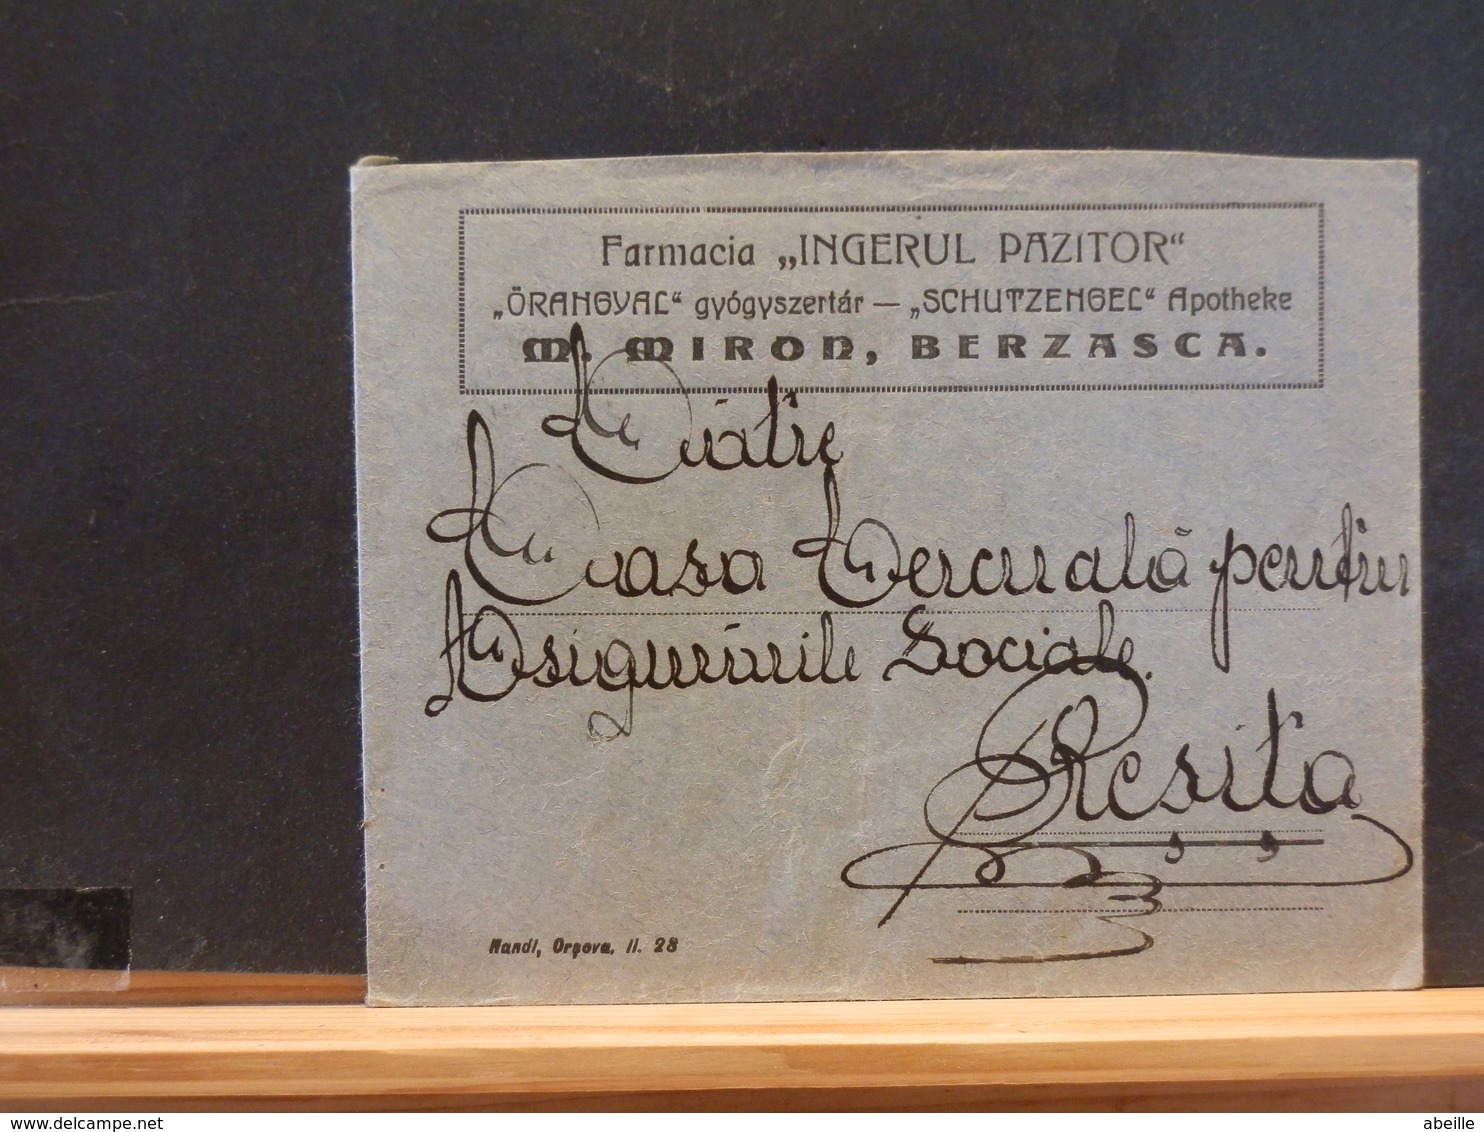 Farmacia „INGERUL PAZITOR“
„ŐRANGYAL“ gyógyszertár — „SCHUTZENGEL“ Apotheke
M. MIRON, BERZASCA.
Cuatre
Casa Cercuală pentru
Asigurările Sociale.
Reșița
Handl, Orşova. II. 28
abeille